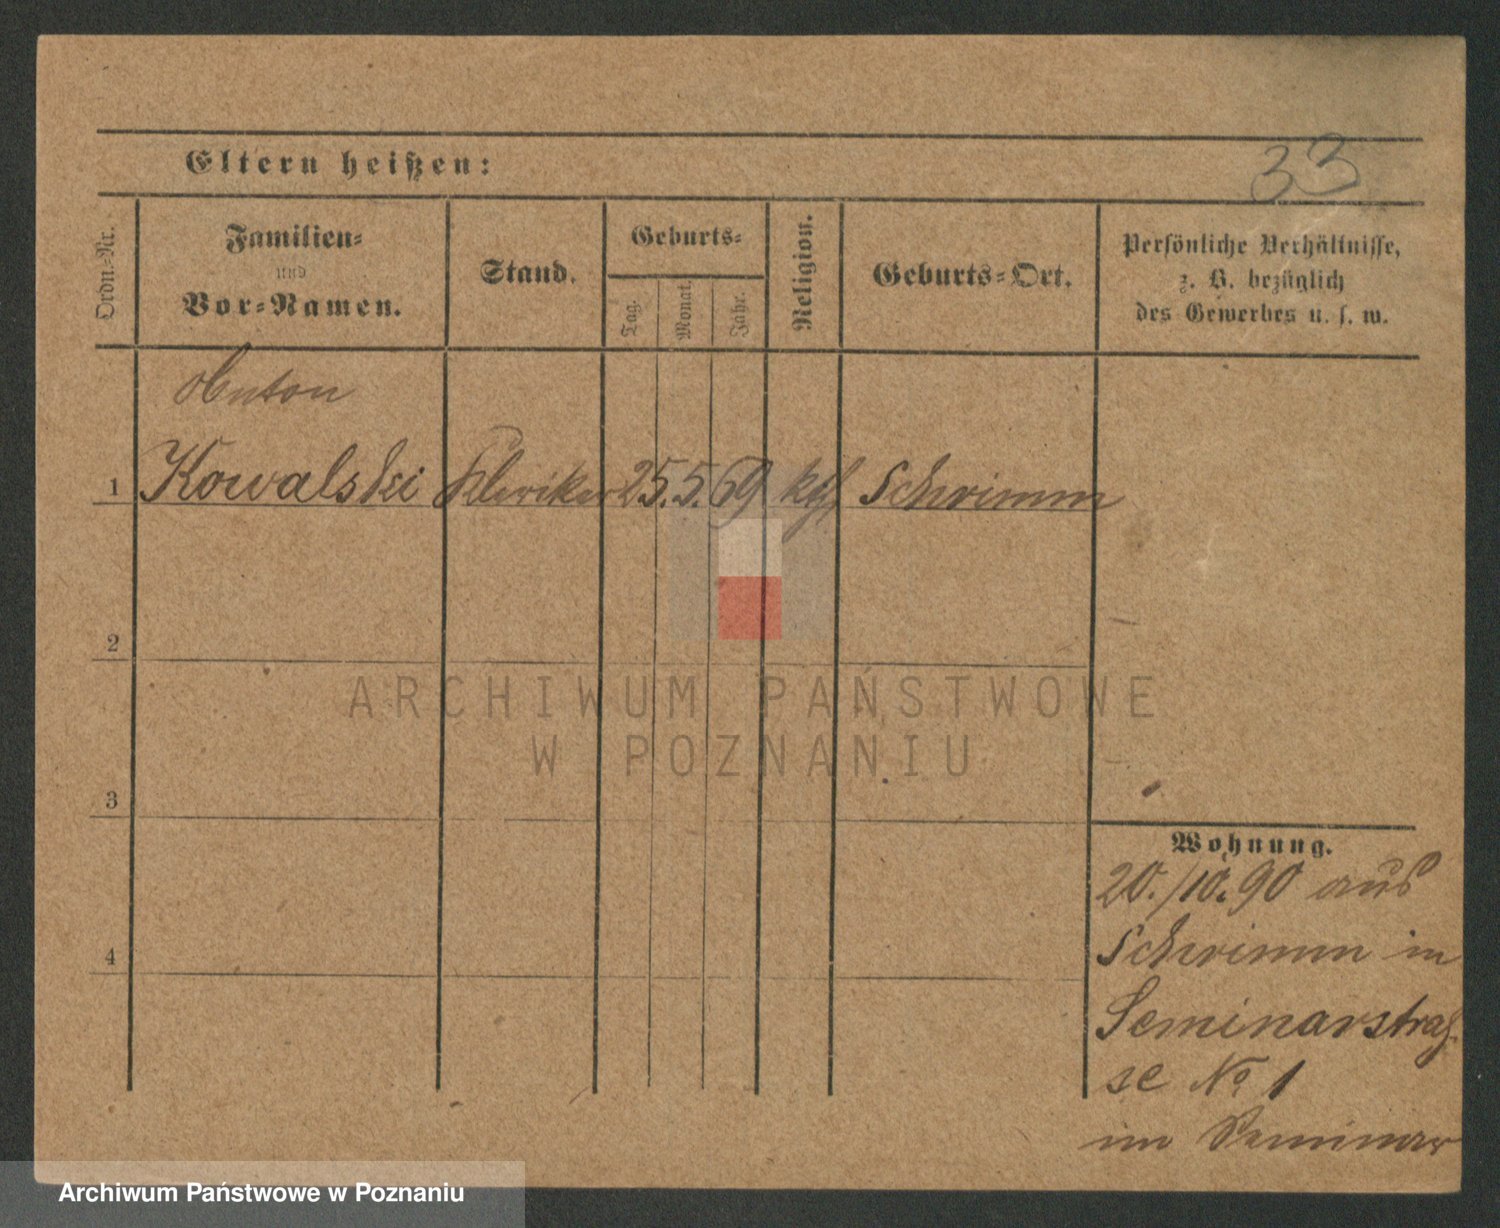 33
Eltern heißen:
Ordn.-Nr.
Familien-
und
Vor-Namen.
Stand.
Geburts-
Tag.
Monat.
Jahr.
Religion.
Geburts-Ort.
Persönliche Verhältnisse,
z. B. bezüglich
des Gewerbes u. s. w.
Anton
1 Kowalski Kleriker 25. 5. 69 kth Schrimm
2
3
4
Wohnung.
20./10. 90 aus
Schrimm in
Seminarstraß-
se No 1
im Seminar
ARCHIWUM PAŃSTWOWE
W POZNANIU
Archiwum Państwowe w Poznaniu